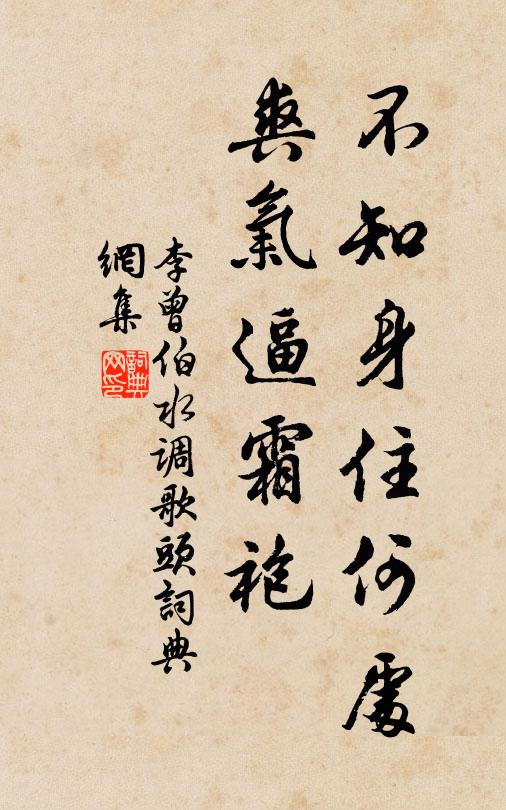 不知身住何處
爽氣逼霜袍
李曾伯水調歌頭詞典
網集
詞典网印